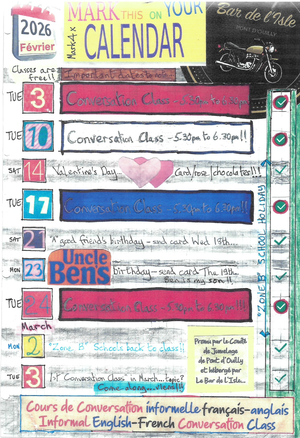 2026
Février
Mark4x
MARK THIS ON YOUR
CALENDAR
Bar de l'Isle
PONT D'OUILLY
Classes are
free!!
Important dates
TUE 3 Conversation Class - 5.30pm to 6.30pm!!
TUE 10 Conversation Class - 5.30pm to 6.30pm!!
SAT 14 Valentine's Day Card, rose, chocolates!!!
TUE 17 Conversation Class - 5.30pm to 6.30pm!!
SAT 21 A good friend's birthday - send card Wed 18th...
MON 23 Uncle Ben's birthday - send card Thu 19th...
Ben is my son!!
TUE 24 Conversation Class - 5.30pm to 6.30pm!!
"ZONE B" SCHOOL HOLIDAY
March
MON 2 "Zone B" Schools back to class!!
TUE 3 1st Conversation Class in March... Topic?
Come along... friend!!!
Promu par le Comité
de Jumelage
de Pont d'Ouilly
et hébergé par
Le Bar de L'Isle...
Cours de Conversation informelle français-anglais
Informal English-French Conversation Class